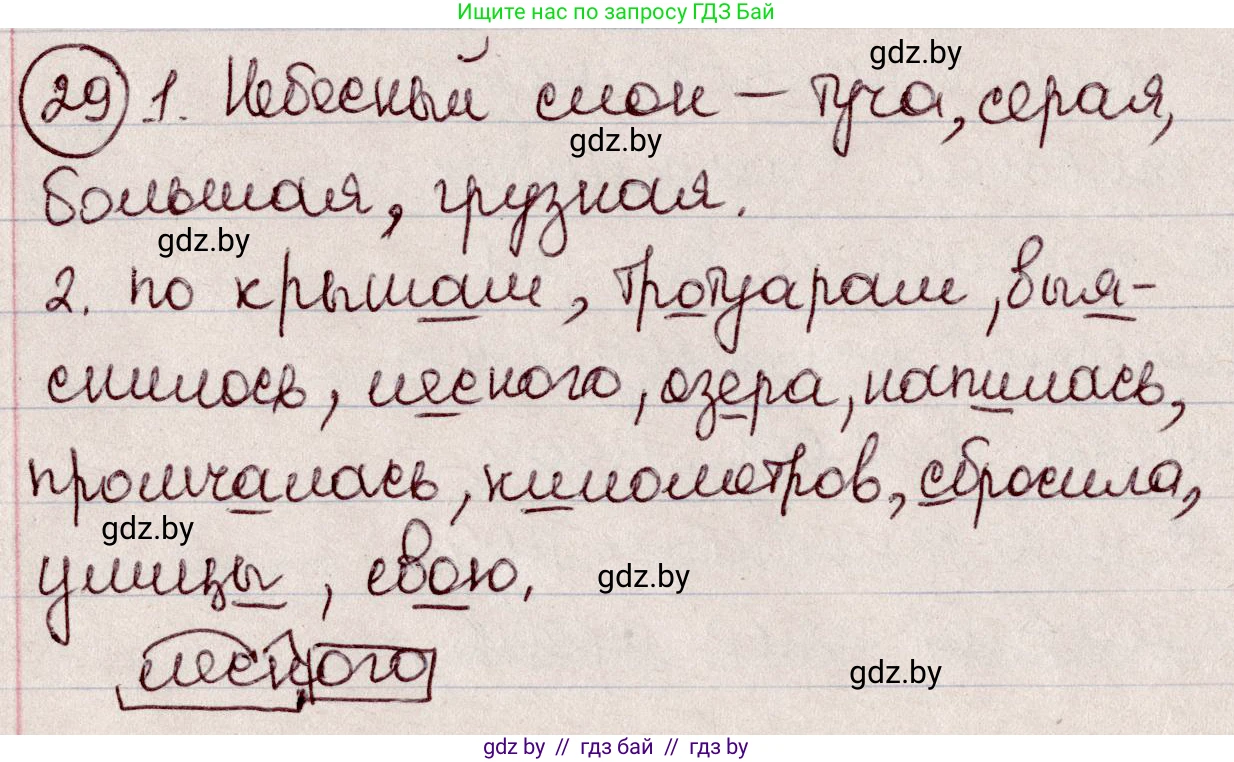 Ищите нас по запросу ГДЗ Бай
gdz.by
29 1. Небесный слон – туча, серая,
gdz.by
большая, грузная.
gdz.by
2. по крышам, тротуарам, выя-
снилось, лесного, озера, напилась,
промчалась, километров, сбросила,
gdz.by
улицы, свою.
gdz.by
лесного
gdz.by
gdz by // гдз бай // gdz by